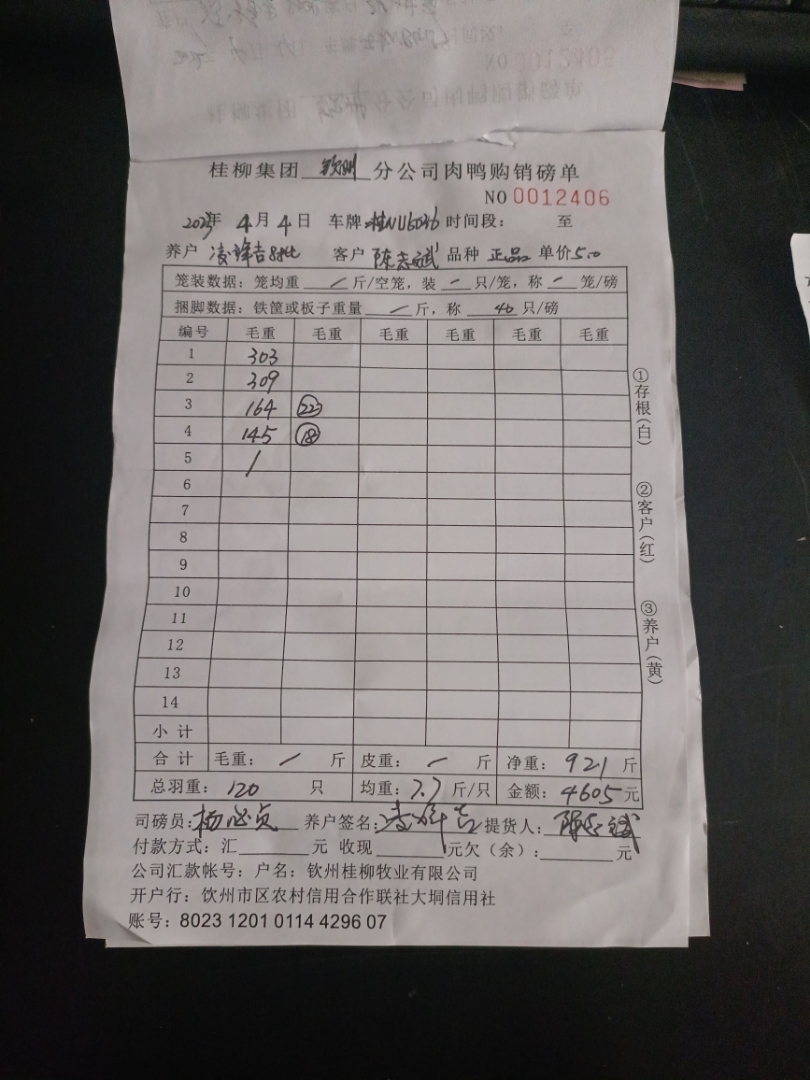 桂柳集团 钦州 分公司肉鸭购销磅单
NO 0012406
2023年 4月4日 车牌: 时间段: 至
养户 客户 陈志斌 品种 正品 单价5.0
笼装数据: 笼均重 / 斤/空笼, 装 - 只/笼, 称 - 笼/磅
捆脚数据: 铁筐或板子重量 / 斤, 称 40 只/磅
编号 毛重 毛重 毛重 毛重 毛重 毛重
1 303
2 309
3 164 22
4 145 18
5 /
6
7
8
9
10
11
12
13
14
小计
合计 毛重: / 斤 皮重: - 斤 净重: 921 斤
总羽重: 120 只 均重: 7.7 斤/只 金额: 4605 元
司磅员: 养户签名: 提货人: 陈志斌
付款方式: 汇 元 收现 元欠(余): 元
公司汇款帐号: 户名: 钦州桂柳牧业有限公司
开户行: 饮州市区农村信用合作联社大垌信用社
账号: 8023 1201 0114 4296 07
①存根(白)
②客户(红)
③养户(黄)